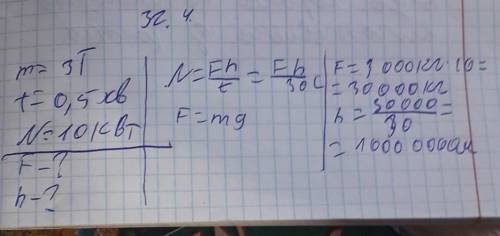 Зг. 4.
m = 3Т
t = 0,5 хв
N = 10 кВт
F - ?
h - ?
N = Fh/t = Fh/30с
F = mg
F = 3 000кг·10 =
= 30000кг
h = 30000/30 =
= 1000 000м